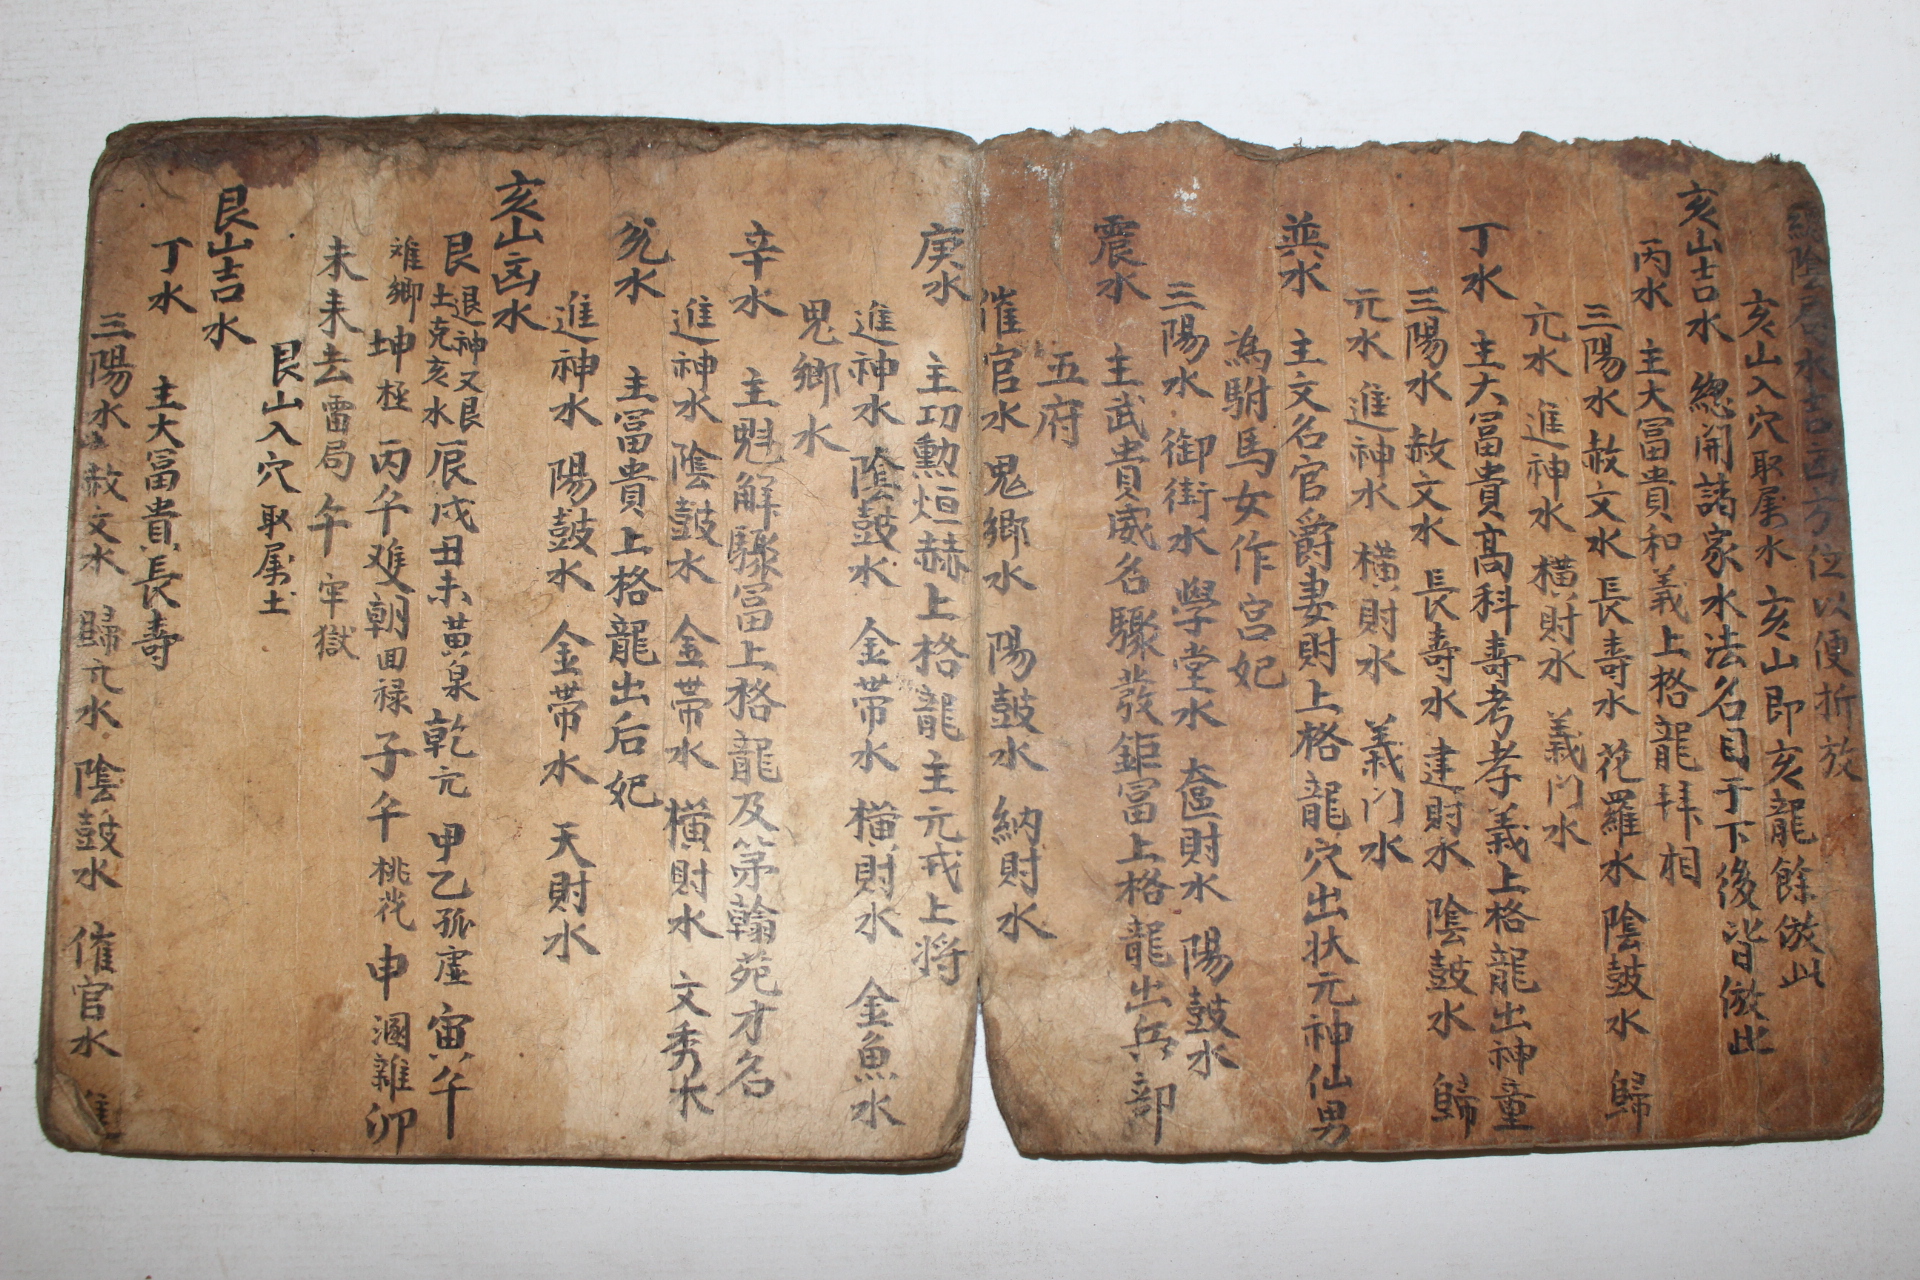 陰 水吉凶方位以便折放
亥山入穴取属水 亥山即亥龍餘倣此
亥山吉水 總開諸家水法名目于下後皆倣此
丙水 主大冨貴和義上格龍拜相
三陽水 赦文水 長壽水 花羅水 陰鼓水 歸
元水 進神水 橫財水 義门水
丁水 主大冨貴髙科壽考孝義上格龍出神童
三陽水 赦文水 長壽水 建財水 陰鼓水 歸
元水 進神水 橫財水 義门水
巽水 主文名官爵妻財上格龍穴出状元神仙男
為駙馬女作宫妃
三陽水 御街水 學堂水 財水 陽鼓水
震水 主武貴威名驟發鉅冨上格龍出兵部
五府
催官水 鬼鄉水 陽鼓水 納財水
庚水 主功勳烜赫上格龍主元戎上将
進神水 陰鼓水 金带水 橫財水 金魚水
鬼鄉水
辛水 主魁解驟冨上格龍及苐翰苑才名
進神水 陰鼓水 金带水 橫財水 文秀水
兊水 主冨貴上格龍出后妃
進神水 陽鼓水 金带水 天財水
亥山凶水
艮 退神又艮土克亥水 辰戌丑未黄泉 乾亢 甲乙孤虚 寅午
难鄉 坤極 丙午难朝回禄 子午桃花 申溷雜卯
未来去雷局 午牢獄
艮山入穴取属土
艮山吉水
丁水 主大冨貴長壽
三陽水 赦文水 歸元水 陰鼓水 催官水 進